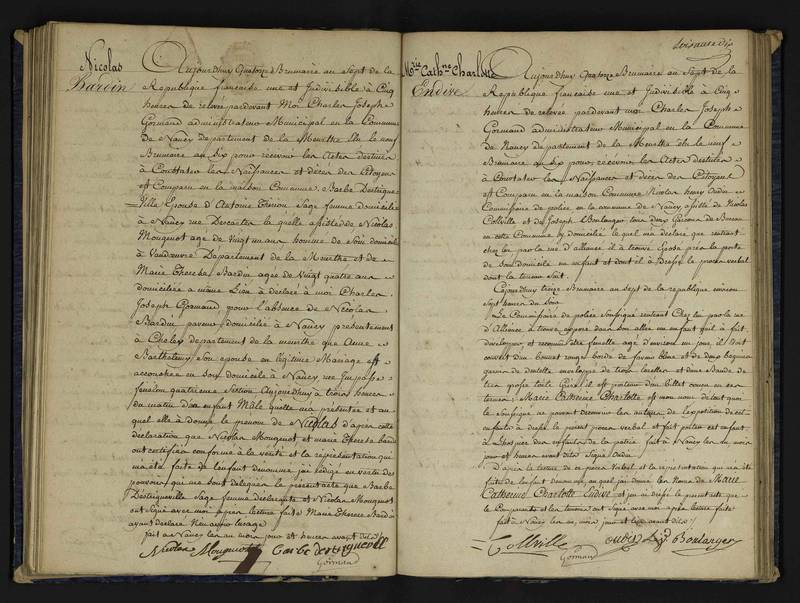 Nicolas
Bardin
Aujourdhuy Quatorze Brumaire an Sept de la
Republique francaise une et Indivisible à Cinq
heures de relevé pardevant Moi Charles Joseph
Gormand administrateur Municipal en la Commune
de Nancy departement de la Meurthe Elu le neuf
Brumaire an Six pour recevoir les Actes destinés
à Constater les Naissances et décès des Citoyens
est Comparu en la maison Commune Barbe Destrigue
Ville Epouse d'Antoine Sage femme domiciliée
à Nancy rue Descartes la quelle assistée de Nicolas
Mougenot age de Vingt un ans homme de Soie domicilié
à Vandœuvre Departement de la Meurthe et de
Marie Therese Bardin agée de Vingt quatre ans
domiciliée a même Lieu à déclaré à moi Charles
Joseph Gormand pour l'absence de Nicolas
Bardin paveur domicilié à Nancy présentement
à departement de la meurthe que Anne
Barthelemy Son epouse en légitime Mariage est
accouchée en Son domicile à Nancy rue
fenelon quatrieme Section Aujourdhuy à trois heures
du matin d'un enfant Mâle quelle ma présentée et au
quel elle à donné le prenom de Nicolas d'après cette
déclaration que Nicolas Mougenot et marie Therese bardin
ont certifiée conforme à la verité et la réprésentation qui
ma été faite de lenfant denommé jai rédigé en vertu des
pouvoirs qui me sont delegués le présent acte que Barbe
Destrigueville Sage femme déclarante et Nicolas Mougenot
ont Signé avec moi après lecture faite Marie Therese Bardin
ayant declaré
fait a Nancy les an mois jour et heures avant dits
Nicolas Mougenot Barbe destrigueville
Gormand
Marie Cathne Charlotte
Endive
Aujourdhuy Quatorze Brumaire an Sept de la
Republique francaise une et Indivisible à Cinq
heures de relevée pardevant moi Charles Joseph
Gormand administrateur Municipal en la Commune
de Nancy departement de la Meurthe Elu le neuf
Brumaire an Six pour recevoir les Actes destinés
à Constater les Naissances et décès des Citoyens
est Comparu en la maison Commune Nicolas henry Oudin
Commissaire de police en la commune de Nancy assisté de Nicolas
Collville et de Joseph Boulanger tous deux Garçons de Bureau
en cette Commune y domiciliés le quel ma déclaré que rentrant
chez lui par la rue d'alliance il à trouvé près la porte
de Son domicile un enfant et dont il à dressé le procès verbal
dont la teneur Suit.
Cejourdhuy treize Brumaire an sept de la republique environ
Sept heures du Soir
Le Commissaire de police Soussigné rentrant Chez lui par la rue
d'Aliance à trouvé exposé dans son allée un enfant quil à fait
développer, et reconnu etre femelle agé d'environ un jour, il étoit
couvert d'un bonnet rouge bordé de blanc et de deux beguins
garnis de dentelle enveloppé de trois et d'une Bande de
très grosse toile Grise il est porteur d'un billet concu en ces
termes: Marie Catherine Charlotte est mon nom de tout quoi
le Soussigné ne pouvant découvrir les auteurs de l'exposition de cet
enfant à dressé le present procès verbal et fait porter cet enfant
à Lhospice des enfants de la patrie fait à Nancy les an mois
jour et heures avant dits Signé Oudin
D'après la lecture de ce procès Verbal et la réprésentation qui ma été
faite de lenfant denommé, au quel jai donné les Noms de Marie
Catherine Charlotte Endive et jai dressé le present acte que
le Comparants et les temoins ont Signé avec moi après lecture faite
fait à Nancy les an, mois, jour et heures avant dits
Collville oudin Boulanger
Gormand